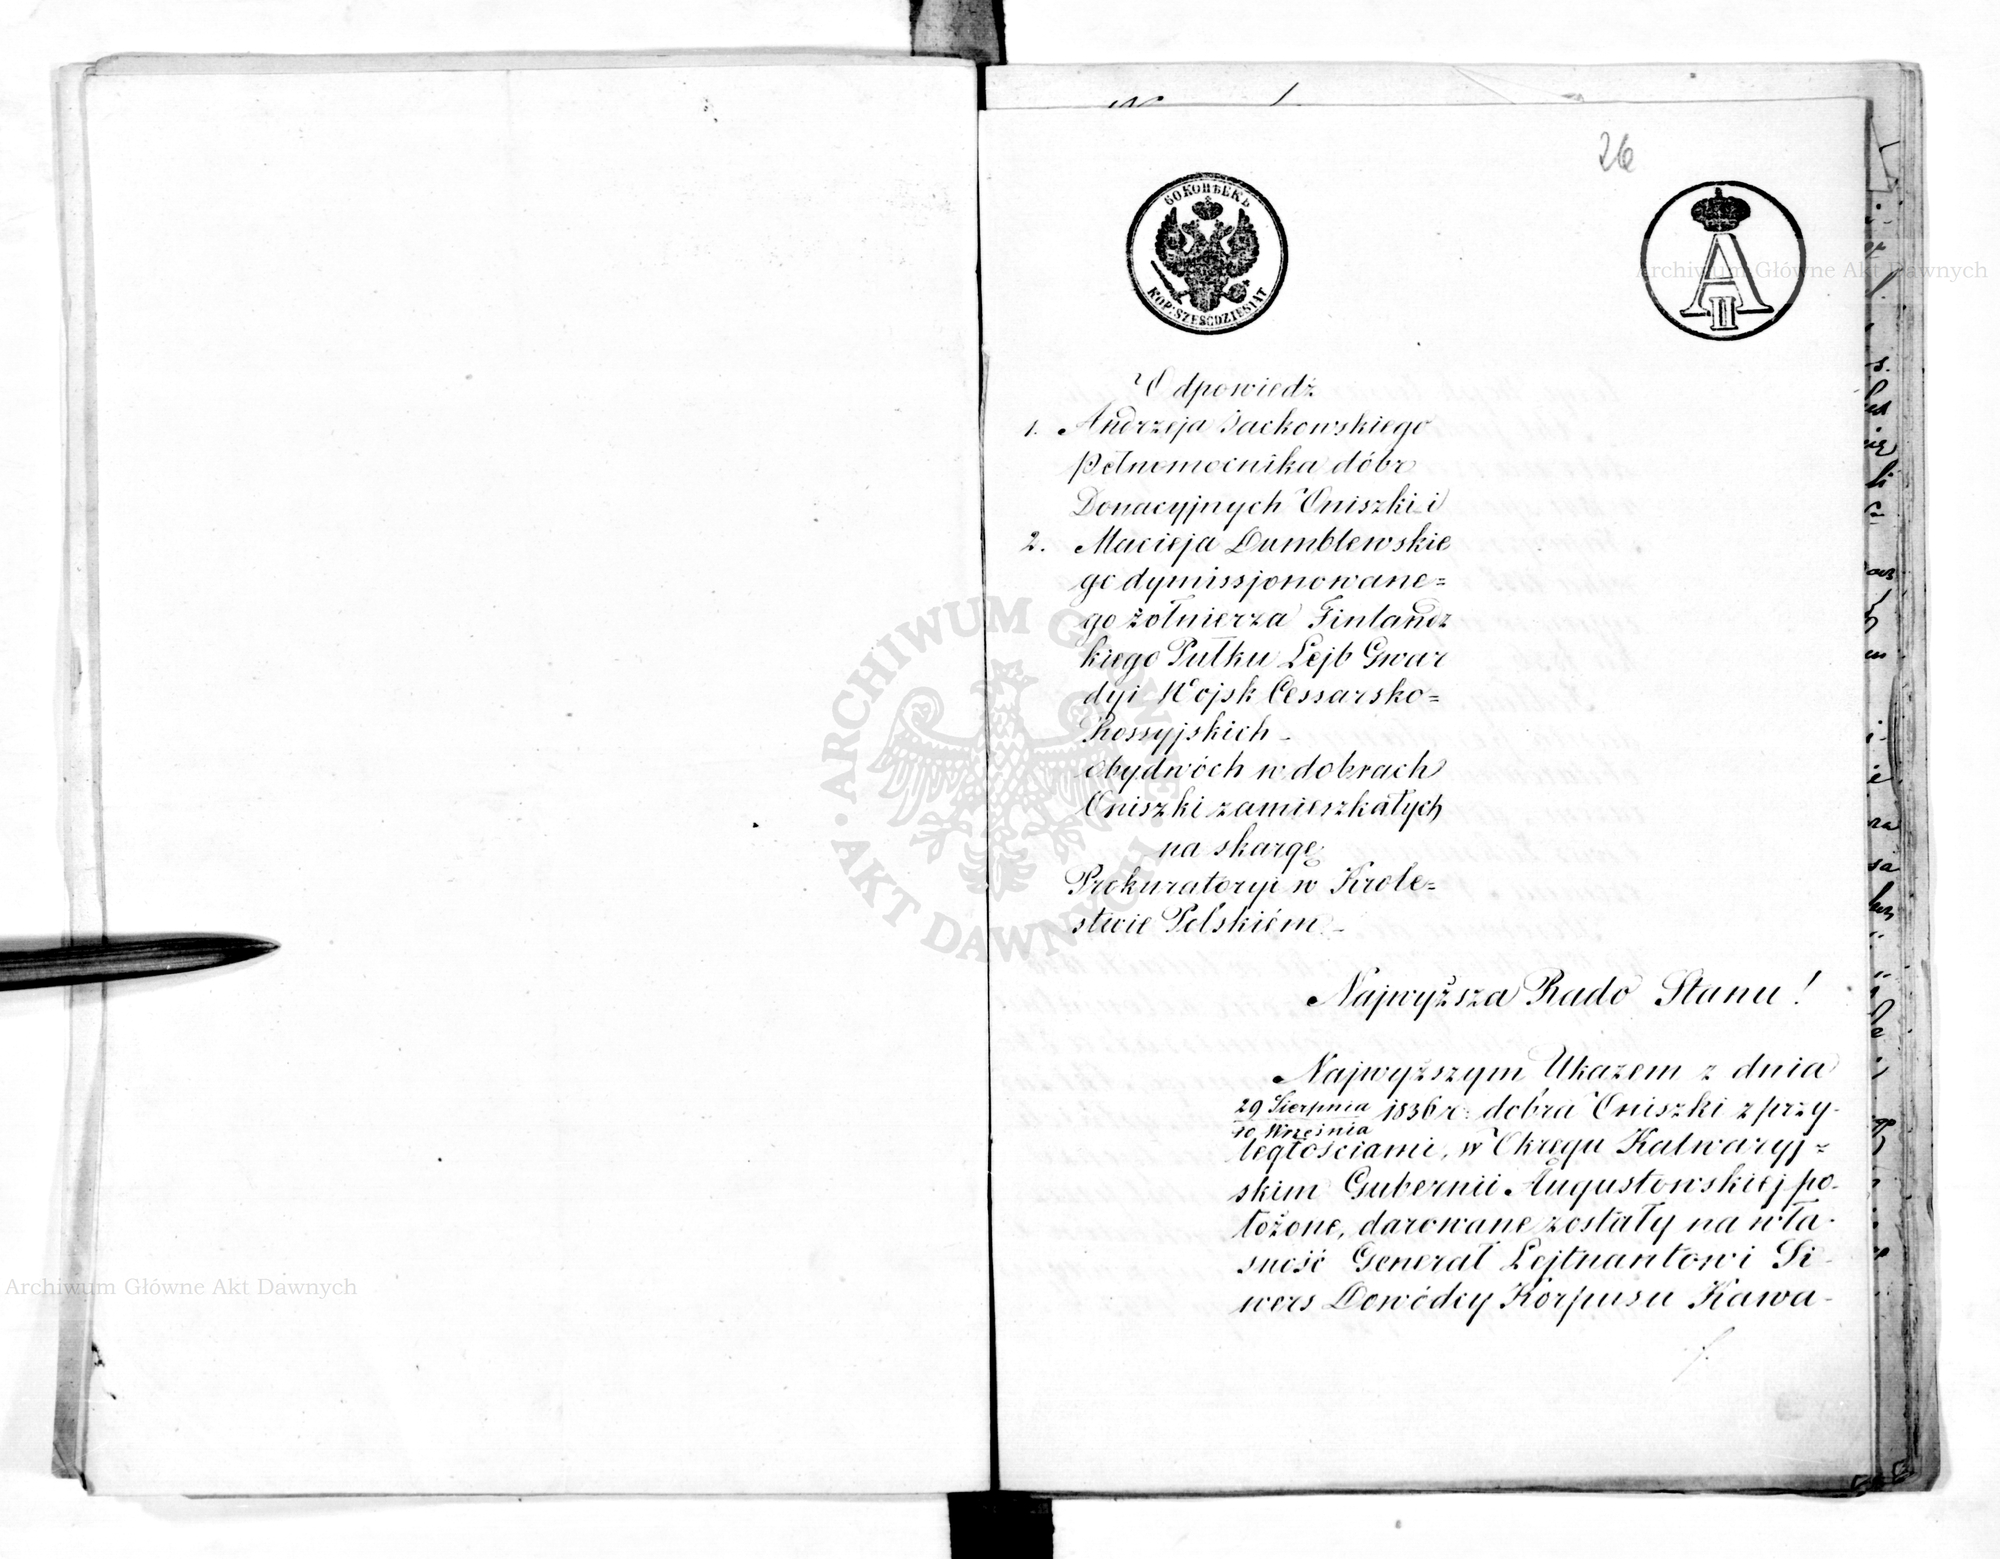 26
60 КОПѢЕКЪ
KOP: SZEŚĆDZIESIĄT
A II
Odpowiedź
1. Andrzeja Sackowskiego
pełnomocnika dóbr
Donacyjnych Oniszki i
2. Macieja Dumblewskie
go dymissjonowane=
go żołnierza Finlandz
kiego Pułku Lejb Gwar
dyi Wojsk Cessarsko=
Rossyjskich –
obydwóch w dobrach
Oniszki zamieszkałych
na skargę
Prokuratoryi w Krole=
stwie Polskiém. –
Najwyższa Rado Stanu!
Najwyższym Ukazem z dnia
29 Sierpnia
10 Września 1836 r: dobra Oniszki z przy-
ległościami, w Okręgu Kalwaryj=
skim Gubernii Augustowskiej po-
łożone, darowane zostały na wła-
sność Generał Lejtnantowi Si-
wers Dowódcy Korpusu Kawa-
ARCHIWUM GŁÓWNE AKT DAWNYCH
Archiwum Główne Akt Dawnych
Archiwum Główne Akt Dawnych